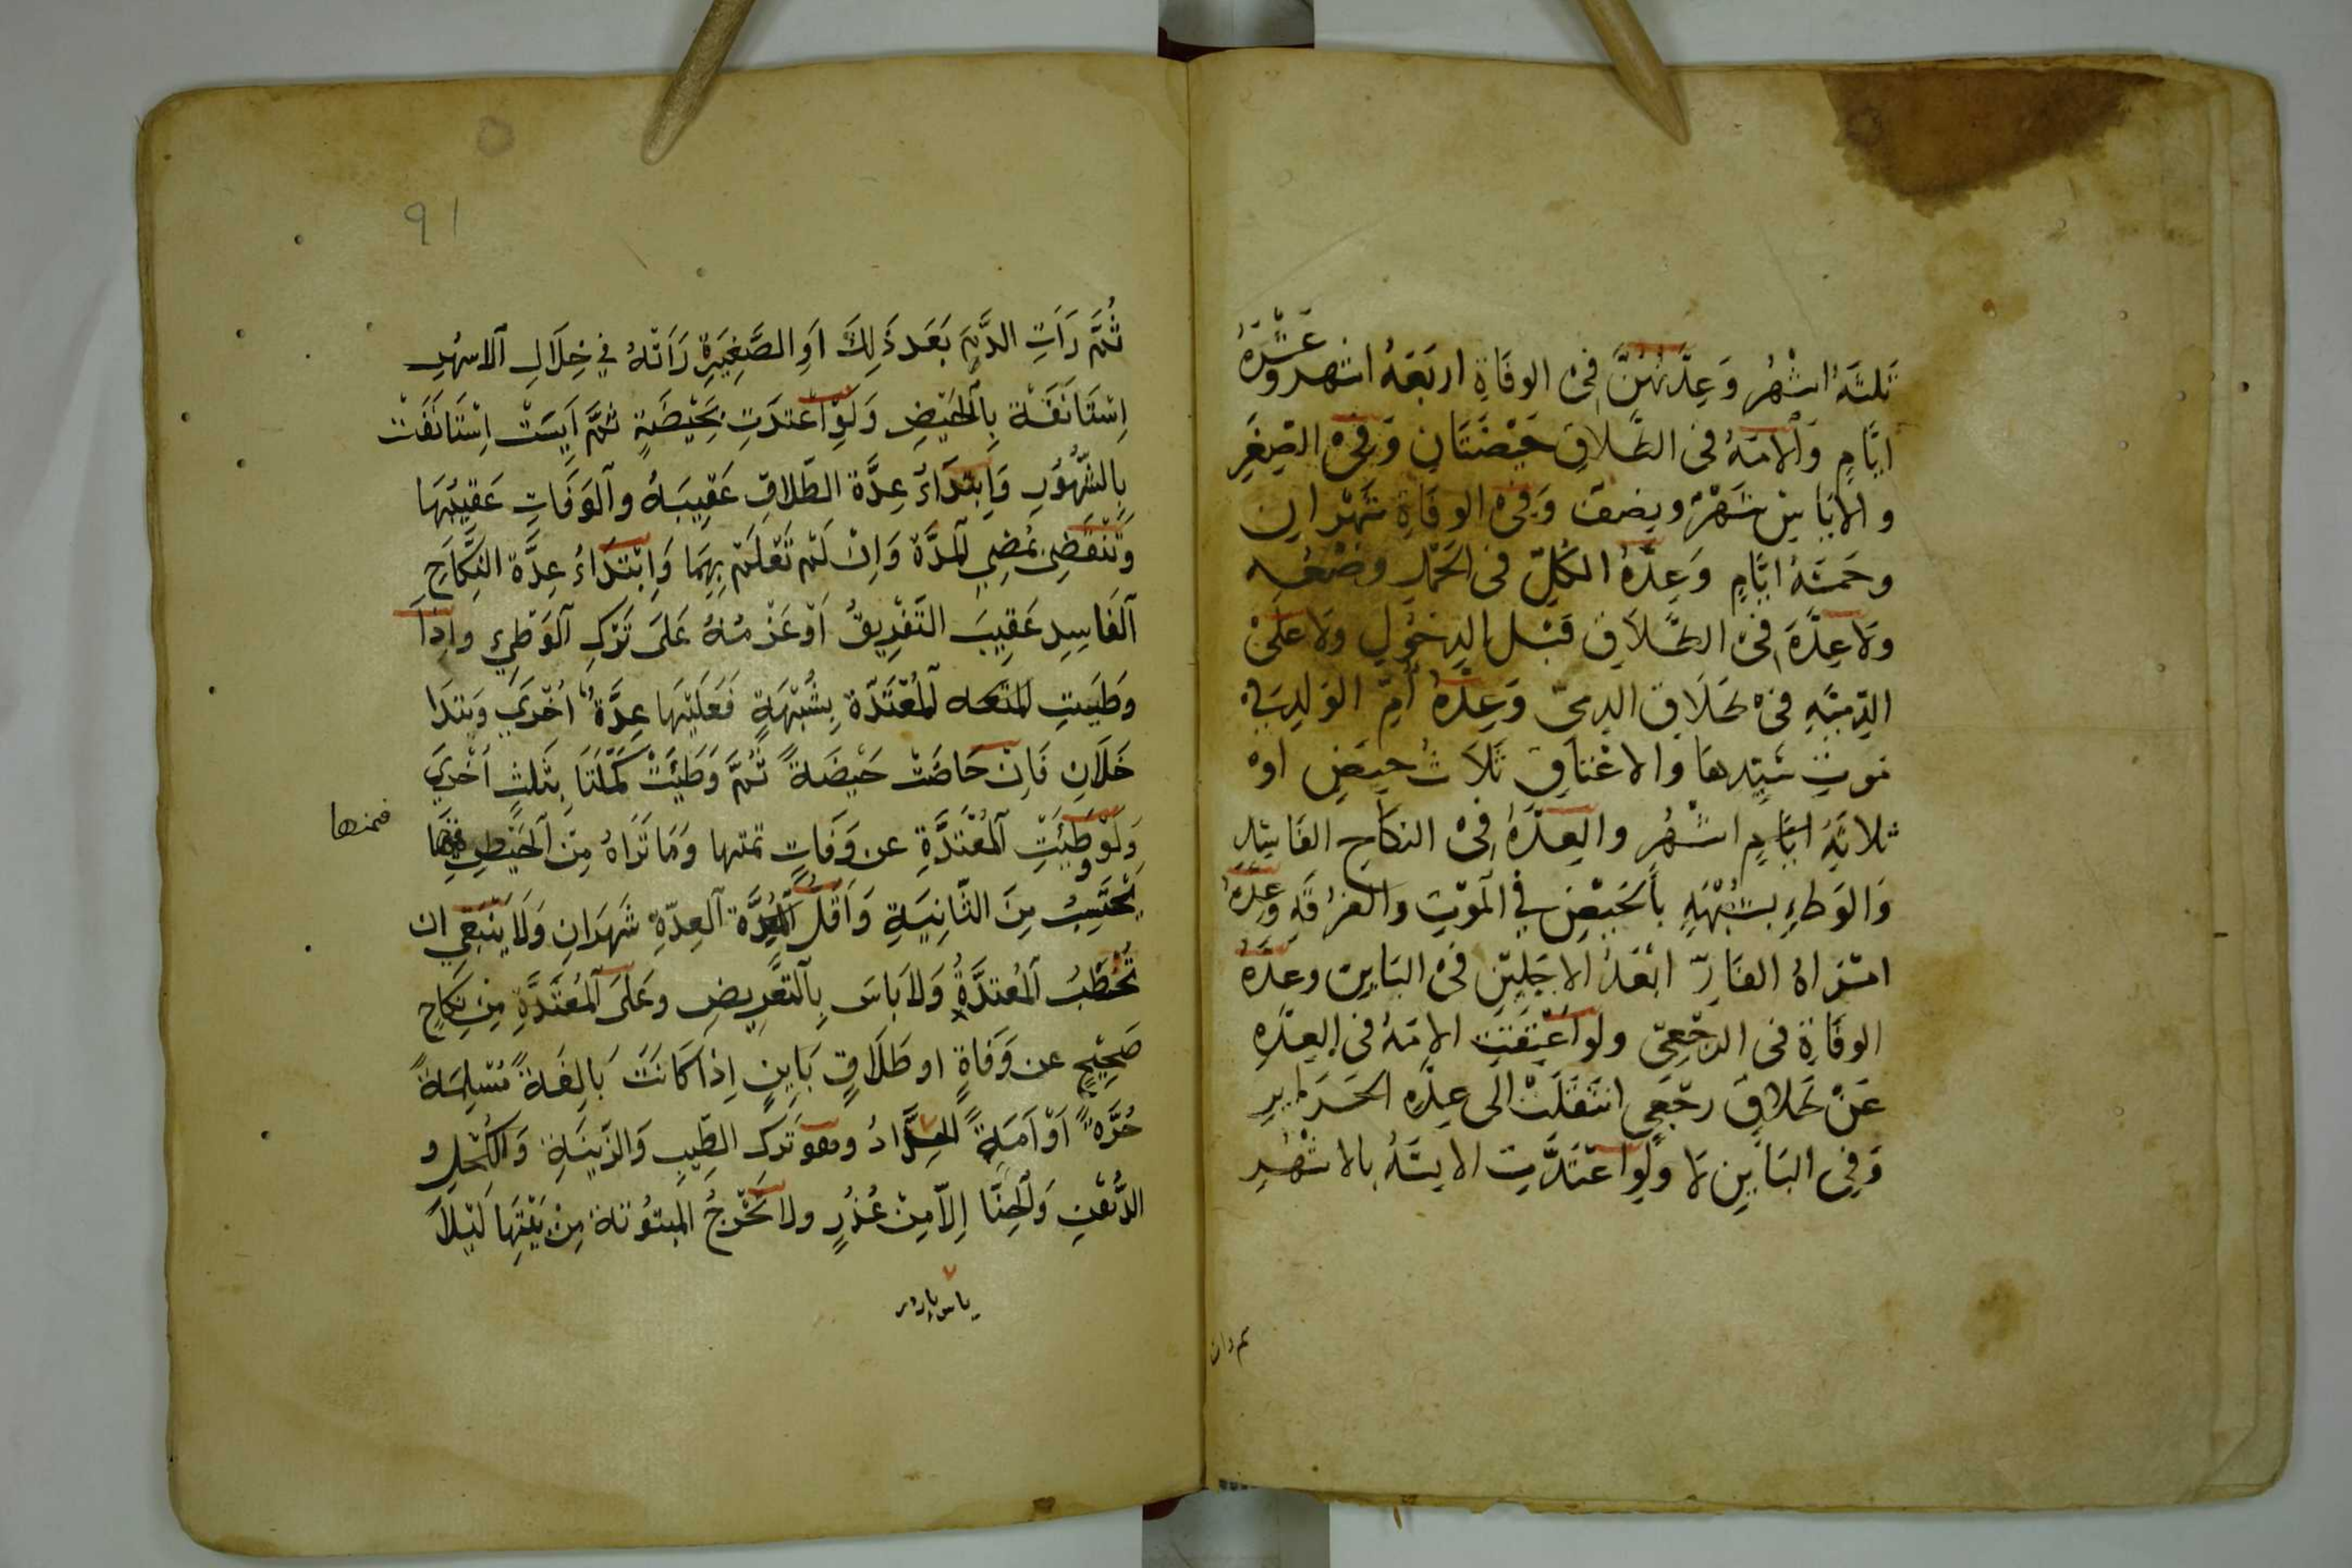 ثَلثَةُ اشْهُرٍ وَعِدَّتُهُنَّ فِى الوفَاةِ اربَعَةُ اشهر وَعَشَرَةُ
ايَّامٍ وَالامَةُ فى الطَّلاقِ حَيْضَتَانِ وَفِى الصِّغَرِ
والاياسِ شَهْرٌ ونِصْفٌ وَفِى الوفَاةِ شَهْرانِ
وخمسَةُ ايَّامٍ وَعِدَّةُ الكُلِّ فى الحَمْلِ وضْعُه
ولا عِدَّةَ فى الطَّلاقِ قَبْل الدخُولِ ولا عَلَىْ
الذِمّيَّةِ فى طَلَاقِ الذِمىّ وَعِدَّةُ أُمِّ الوَلدِ فى
مَوتِ سَيِّدِها والاعْتاقِ ثَلَاثُ حِيَضٍ او
ثلاثَةُ ايَّامٍ اشْهُرٍ والعِدَّةُ فِى النكَاحِ الفَاسِدِ
وَالوَطِءِ بشُبْهَةٍ بِالحَيْضِ فِي الْمَوْتِ والفُرْقَةِ وَعِدَّةُ
امْرَاةُ الفَارِّ ابْعَدُ الاجَلَينِ فى البَاينِ وعِدَّةُ
الوفَاةِ فى الرجْعِىّ ولو اعْتِقَتِ الامَةُ فى العِدَّةِ
عَنْ طَلاقٍ رجْعِى انتَقَلَتْ الى عِدَّةِ الحَرَاير
وَفِى البَايِنِ لا ولَوِ اعتَدَّتِ الايسَةُ بالاشْهُرِ
ثُمَّ رَاَتِ الدَّمَ بَعَدَ ذَلِكَ اَوِ الصَّغِيَرةِ رَاَتْهُ فِي خِلَالِ الاشهُرِ
اِسْتَانَفَتْ بِالْحَيْضِ وَلَوِ اعْتدَتِ بِحَيْضَةٍ ثمَّ اَيِسَتْ اِسْتَانَفَتْ
بِالشُّهُوُرِ وَاِبتدَاءُ عِدَّة الطَّلاقِ عَقِيبَهُ والْوَفَاتِ عَقِيبَهَا
وَتَنْقَضِى بمُضِي المدَّة وَاِنْ لَمْ تَعْلَمْ بِهِمَا وَاِبْتَدَاءُ عِدَّة النِّكَاحِ
الْفَاسِدِ عَقِيبَ التَفْرِيقُ اَوْ عَزْمُهُ عَلَى تَرْكِ الْوَطِيءِ واِذَا
وَطِيَتِ الْمُعْتَدّة بِشُبْهَةٍ فَعَلَيْهَا عِدَّةٌ اُخْرَي وَيَتدَا
خَلَانِ فَاِنْ حَاضَتْ حَيْضَةً ثُمَّ وَطِيَتْ كَمَّلَتَا بِثَلثٍ اُخْرَي
وَلَوْ وَطِيَتِ الْمُعْتَدَّةِ عن وَفَاتٍ تمتها وَمَا تَرَاهُ مِنَ الْحَيْضِ فيهَا
فمنها
يُحْتَسِبُ مِنَ الثَّانِيَةِ وَاَقَلُّ الْمُدَّة الْعِدّةِ شَهَرَانِ وَلَا يَنْبَغِي ان
تُخْطَبُ الْمُعتدَّةُ وَلاَ بَاسَ بِالتَعْرِيضِ وعَلَىَ الْمُعْتَدَّةِ مِنْ نِكَاحٍ
صَحِيْحٍ عن وَفَاةٍ او طَلَاقٍ بَايِنٍ اِذا كَانَتْ بَالِغَةً مُسْلِمَةً
حُرَّةً اَوْ اَمَةً الحِدَادُ وهوَ تَركُ الطِّيبِ وَالزّينَةِ وَالكُحْلِ و
الدُّهْنِ وَالْحِنَّا اِلّاَ مِنْ عُذْرٍ ولا تَخْرجُ المبتُوتة مِنْ بَيْتِهَا لَيْلاً